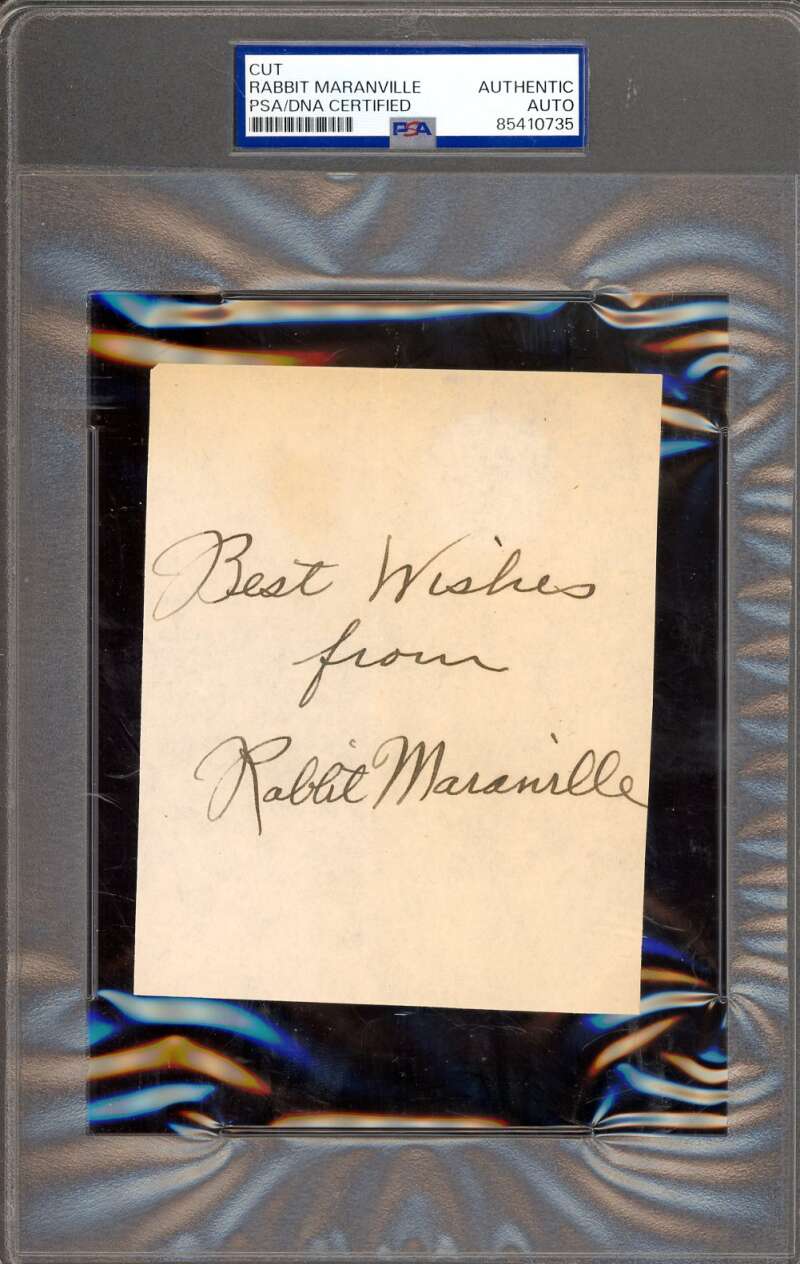 CUT
RABBIT MARANVILLE AUTHENTIC
PSA/DNA CERTIFIED AUTO
PSA 85410735
Best Wishes
from
Rabbit Maranville